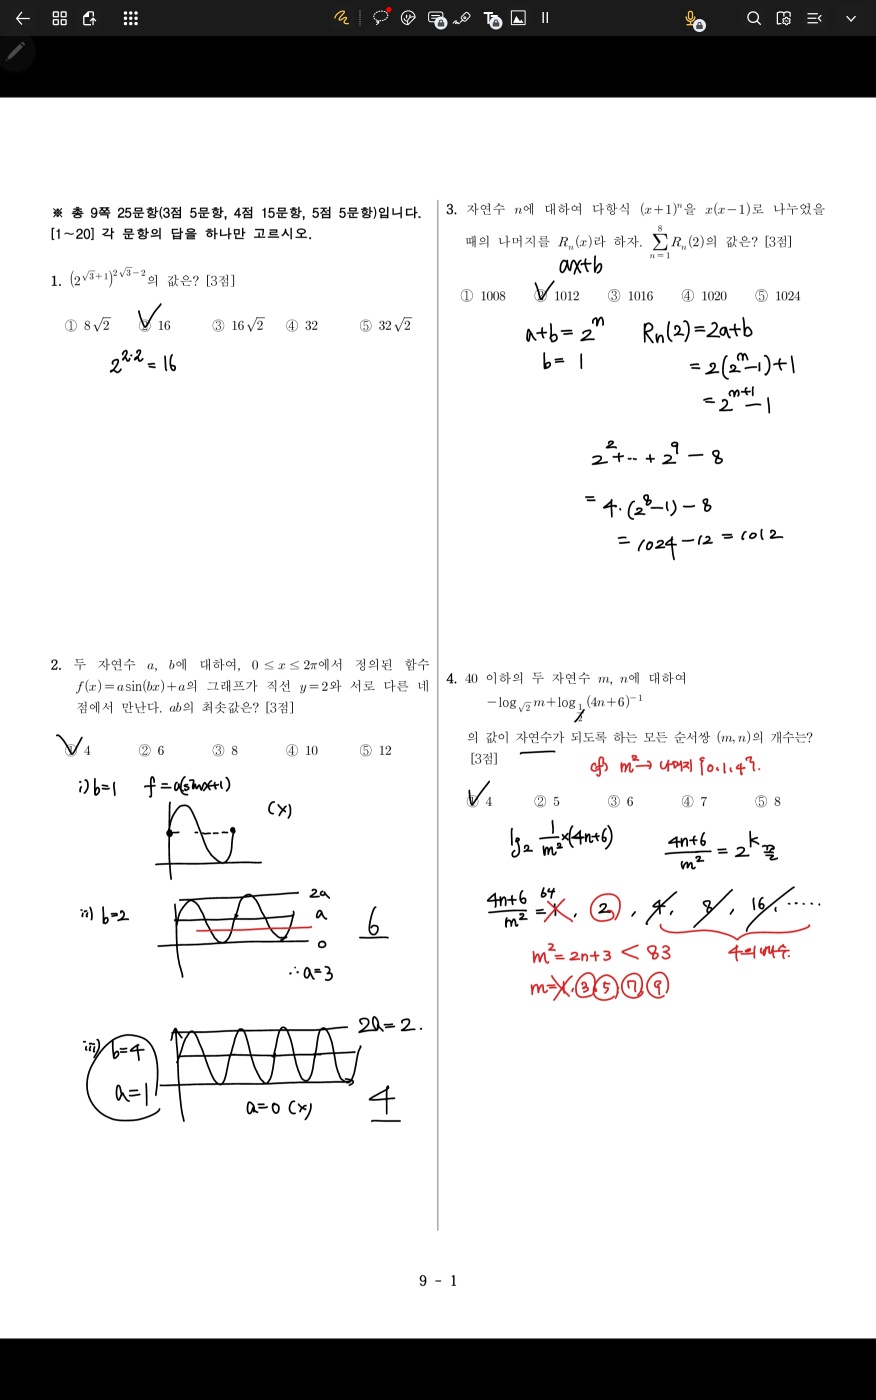 ※ 총 9쪽 25문항(3점 5문항, 4점 15문항, 5점 5문항)입니다.
[1~20] 각 문항의 답을 하나만 고르시오.
1. (2^{√3+1})^{2√3−2}의 값은? [3점]
① 8√2 ② 16 ③ 16√2 ④ 32 ⑤ 32√2
2^{2·2} = 16
2. 두 자연수 a, b에 대하여, 0≤x≤2π에서 정의된 함수
f(x)=a sin(bx)+a의 그래프가 직선 y=2와 서로 다른 네
점에서 만난다. ab의 최솟값은? [3점]
① 4 ② 6 ③ 8 ④ 10 ⑤ 12
i) b=1 f=a(sinx+1)
(x)
ii) b=2
2a
a
0
6
∴a=3
iii) b=4
a=1
2a=2.
a=0 (x)
4
3. 자연수 n에 대하여 다항식 (x+1)^n을 x(x−1)로 나누었을
때의 나머지를 R_n(x)라 하자. ∑_{n=1}^{8} R_n(2)의 값은? [3점]
ax+b
① 1008 ② 1012 ③ 1016 ④ 1020 ⑤ 1024
a+b = 2^n R_n(2) = 2a+b
b = 1 = 2(2^n−1)+1
= 2^{n+1}−1
2^2+··+2^9−8
= 4·(2^8−1)−8
= 1024−12 = 1012
4. 40 이하의 두 자연수 m, n에 대하여
−log_{√2} m + log_{1/2} (4n+6)^{−1}
의 값이 자연수가 되도록 하는 모든 순서쌍 (m, n)의 개수는?
[3점]
cf) m^2→ 나머지 {0,1,4}.
① 4 ② 5 ③ 6 ④ 7 ⑤ 8
log_2 1/m^2 ×(4n+6) (4n+6)/m^2 = 2^k 꼴
(4n+6)/m^2 = 1, 2, 4, 8, 16, ·····
64
m^2 = 2n+3 < 83 4의 배수.
m=1, 3, 5, 7, 9
9 - 1